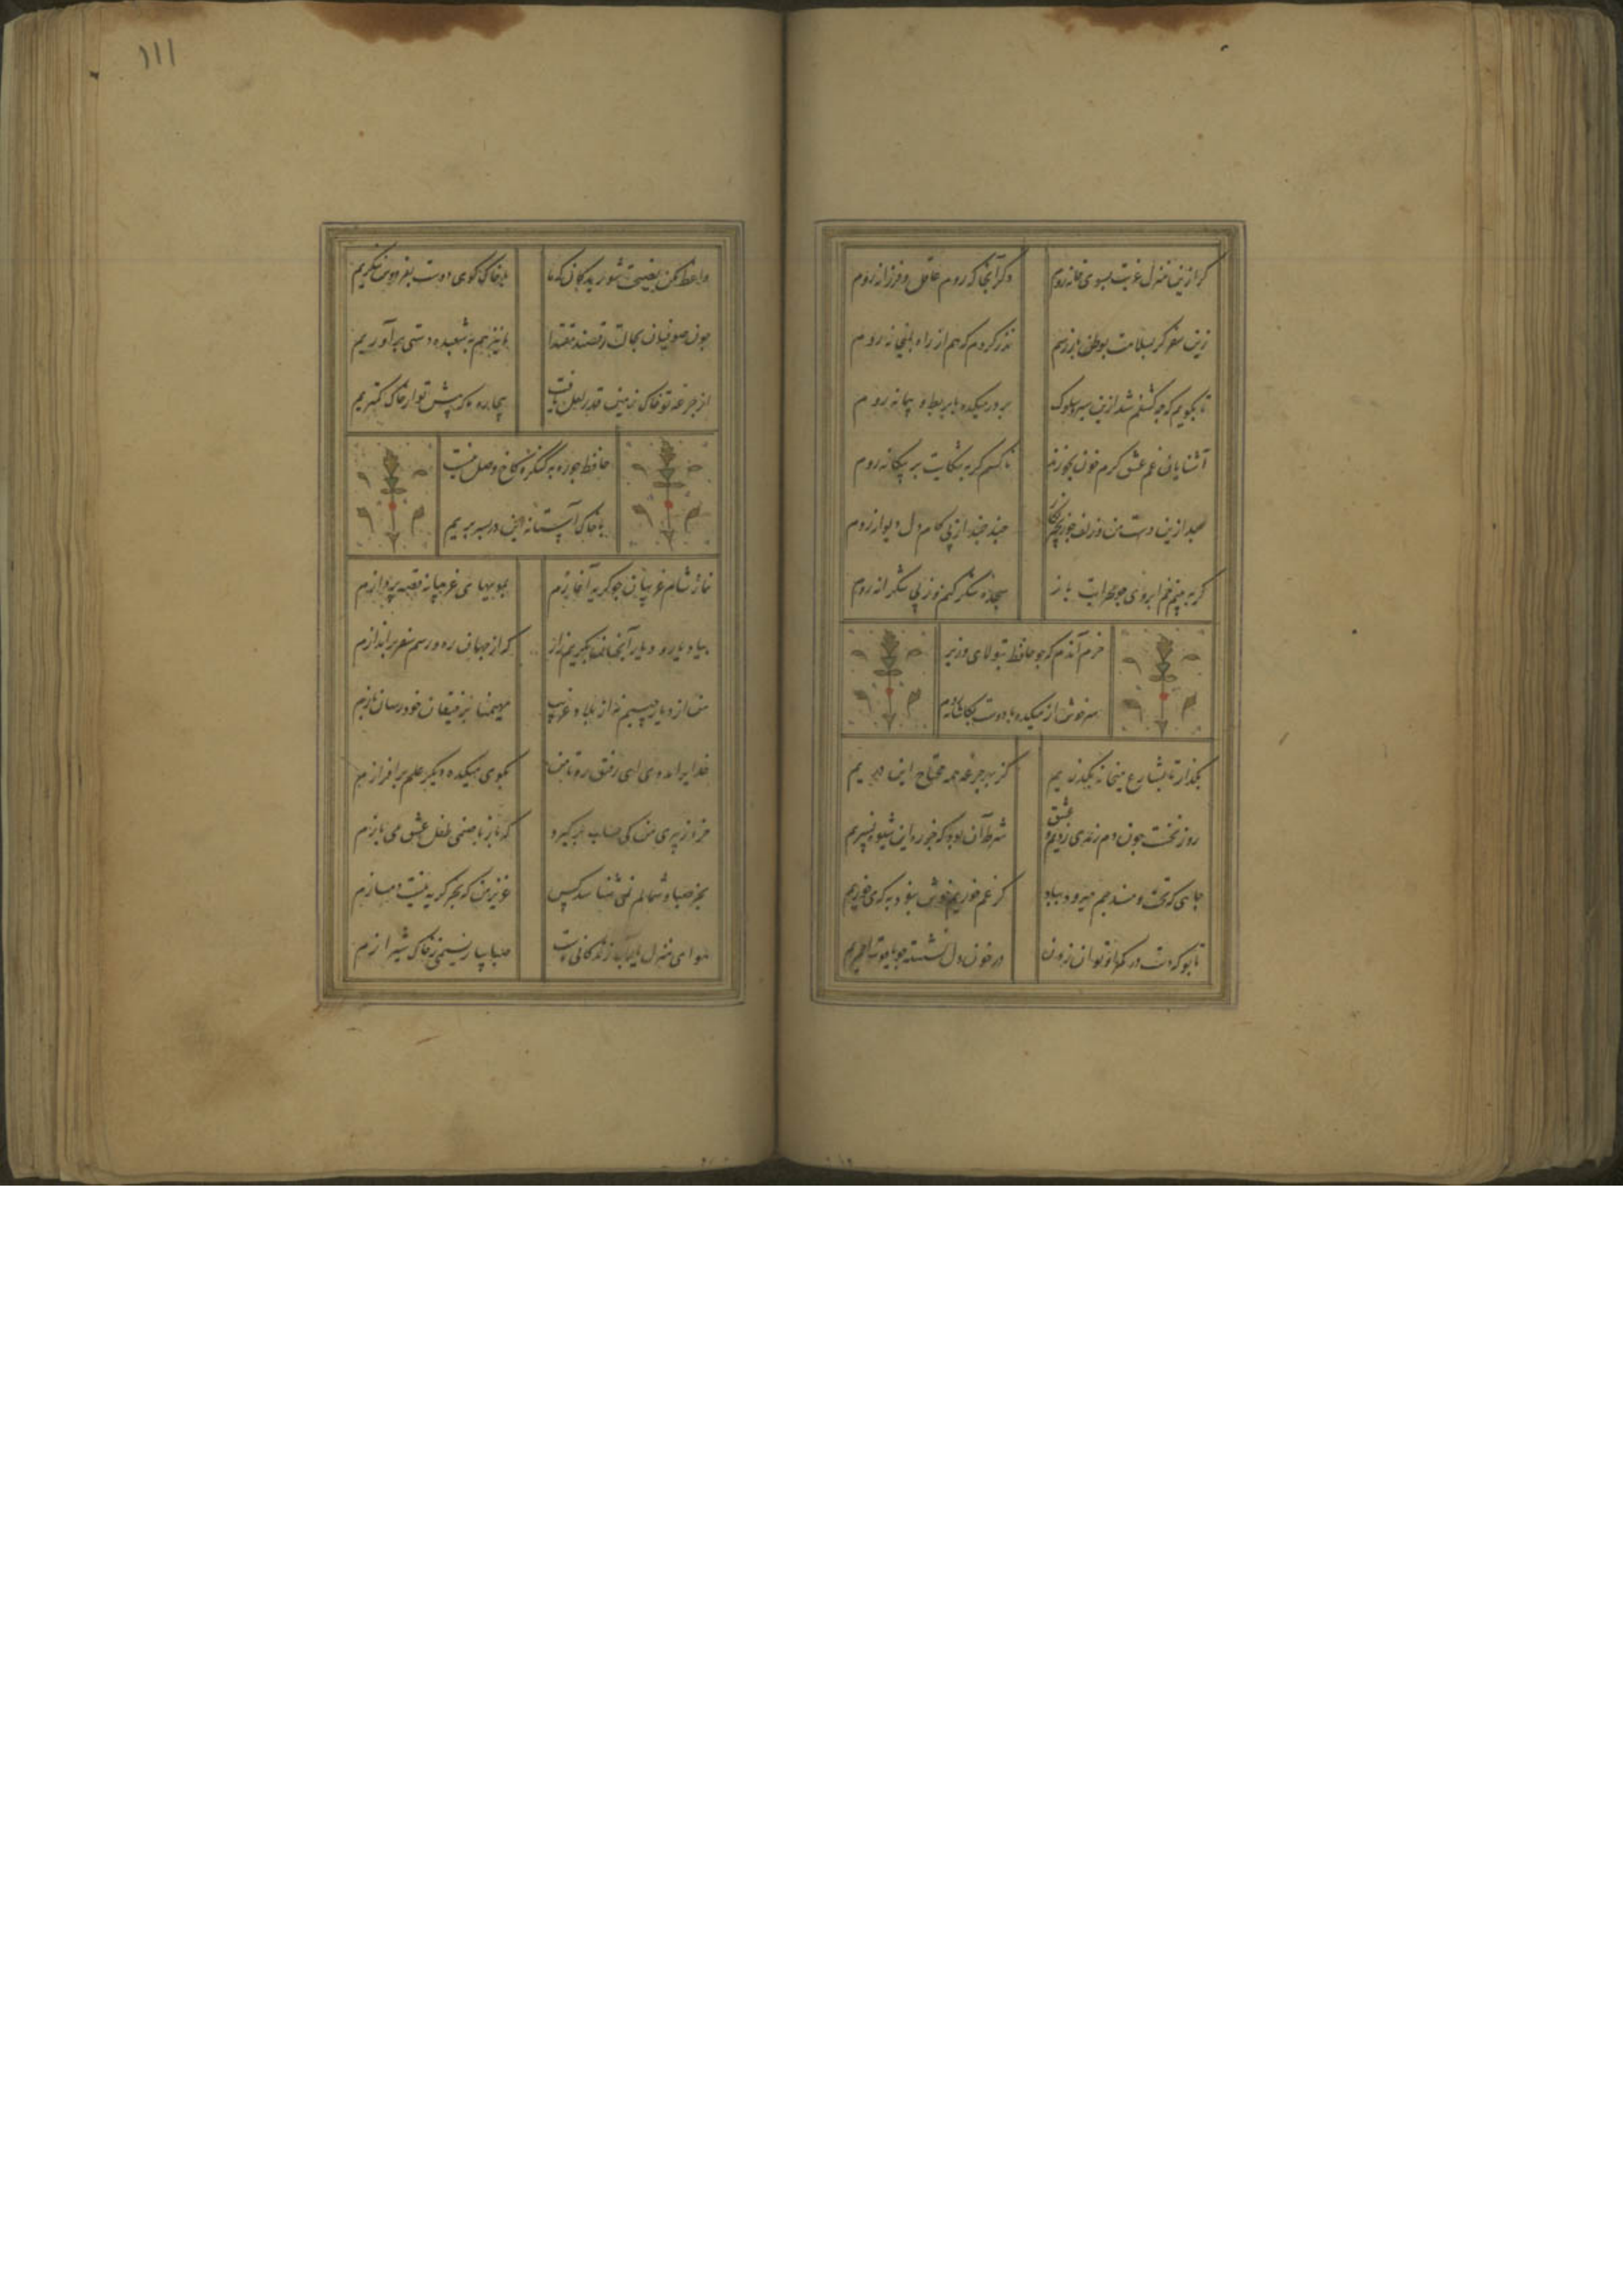 ۱۱۱
کر ازین منزل غربت بسوی خانه روم
دکر آنجا که روم عاقل و فرزانه روم
زین سفر کر بسلامت بوطن باز رسم
نذر کردم که هم از راه بمیخانه روم
تا بکویم که چه کشفم شد ازین سیر و سلوک
بدر میکده با بربط و پیمانه روم
آشنایان غم عشق کرم خون بخورند
ناکسم کر به شکایت بر بیکانه روم
بعد ازین دست من و زلف چو زنجیر نکار
چند چند از پی کام دل دیوانه روم
کر ببینم خم ابروی چو محرابت باز
سجده شکر کنم وز پی شکرانه روم
خرم آندم که چو حافظ بتولای وزیر
سرخوش از میکده با دوست بکاشانه روم
بکذار تا بشارع میخانه بکذریم
کز بهر جرعه همه محتاج این دریم
روز نخست چون دم رندی زدیم و عشق
شرط آن بود که جز ره این شیوه نسپریم
جایی که تخت و مسند جم میرود بباد
کر غم خوریم خوش نبود به که می خوریم
تا بو که دست در کمر او توان زدن
در خون دل نشسته چو یاقوت احمریم
واعظ مکن نصیحت شوریدکان که ما
با خاک کوی دوست بفردوس ننکریم
چون صوفیان بحالت رقصند مقتدا
ما نیز هم بشعبده دستی برآوریم
از جرعه تو خاک زمین قدر لعل یافت
بیچاره ما که پیش تو از خاک کمتریم
حافظ چو ره به کنکره کاخ وصل نیست
با خاک آستانه این در بسر بریم
نماز شام غریبان چو کریه آغازم
بمویهای غریبانه قصه پردازم
بیاد یار و دیار آنچنان بکریم زار
که از جهان ره و رسم سفر براندازم
من از دیار حبیبم نه از بلاد غریب
مهیمنا برفیقان خود رسان بازم
خدایرا مددی ای رفیق ره تا من
بکوی میکده دیکر علم برافرازم
خرد ز پیری من کی حساب برکیرد
که باز با صنمی طفل عشق می بازم
بجز صبا و شمالم نمی شناسد کس
عزیز من که بجز کریه نیست دمسازم
هوای منزل یار آب زندکانی ماست
صبا بیار نسیمی ز خاک شیرازم